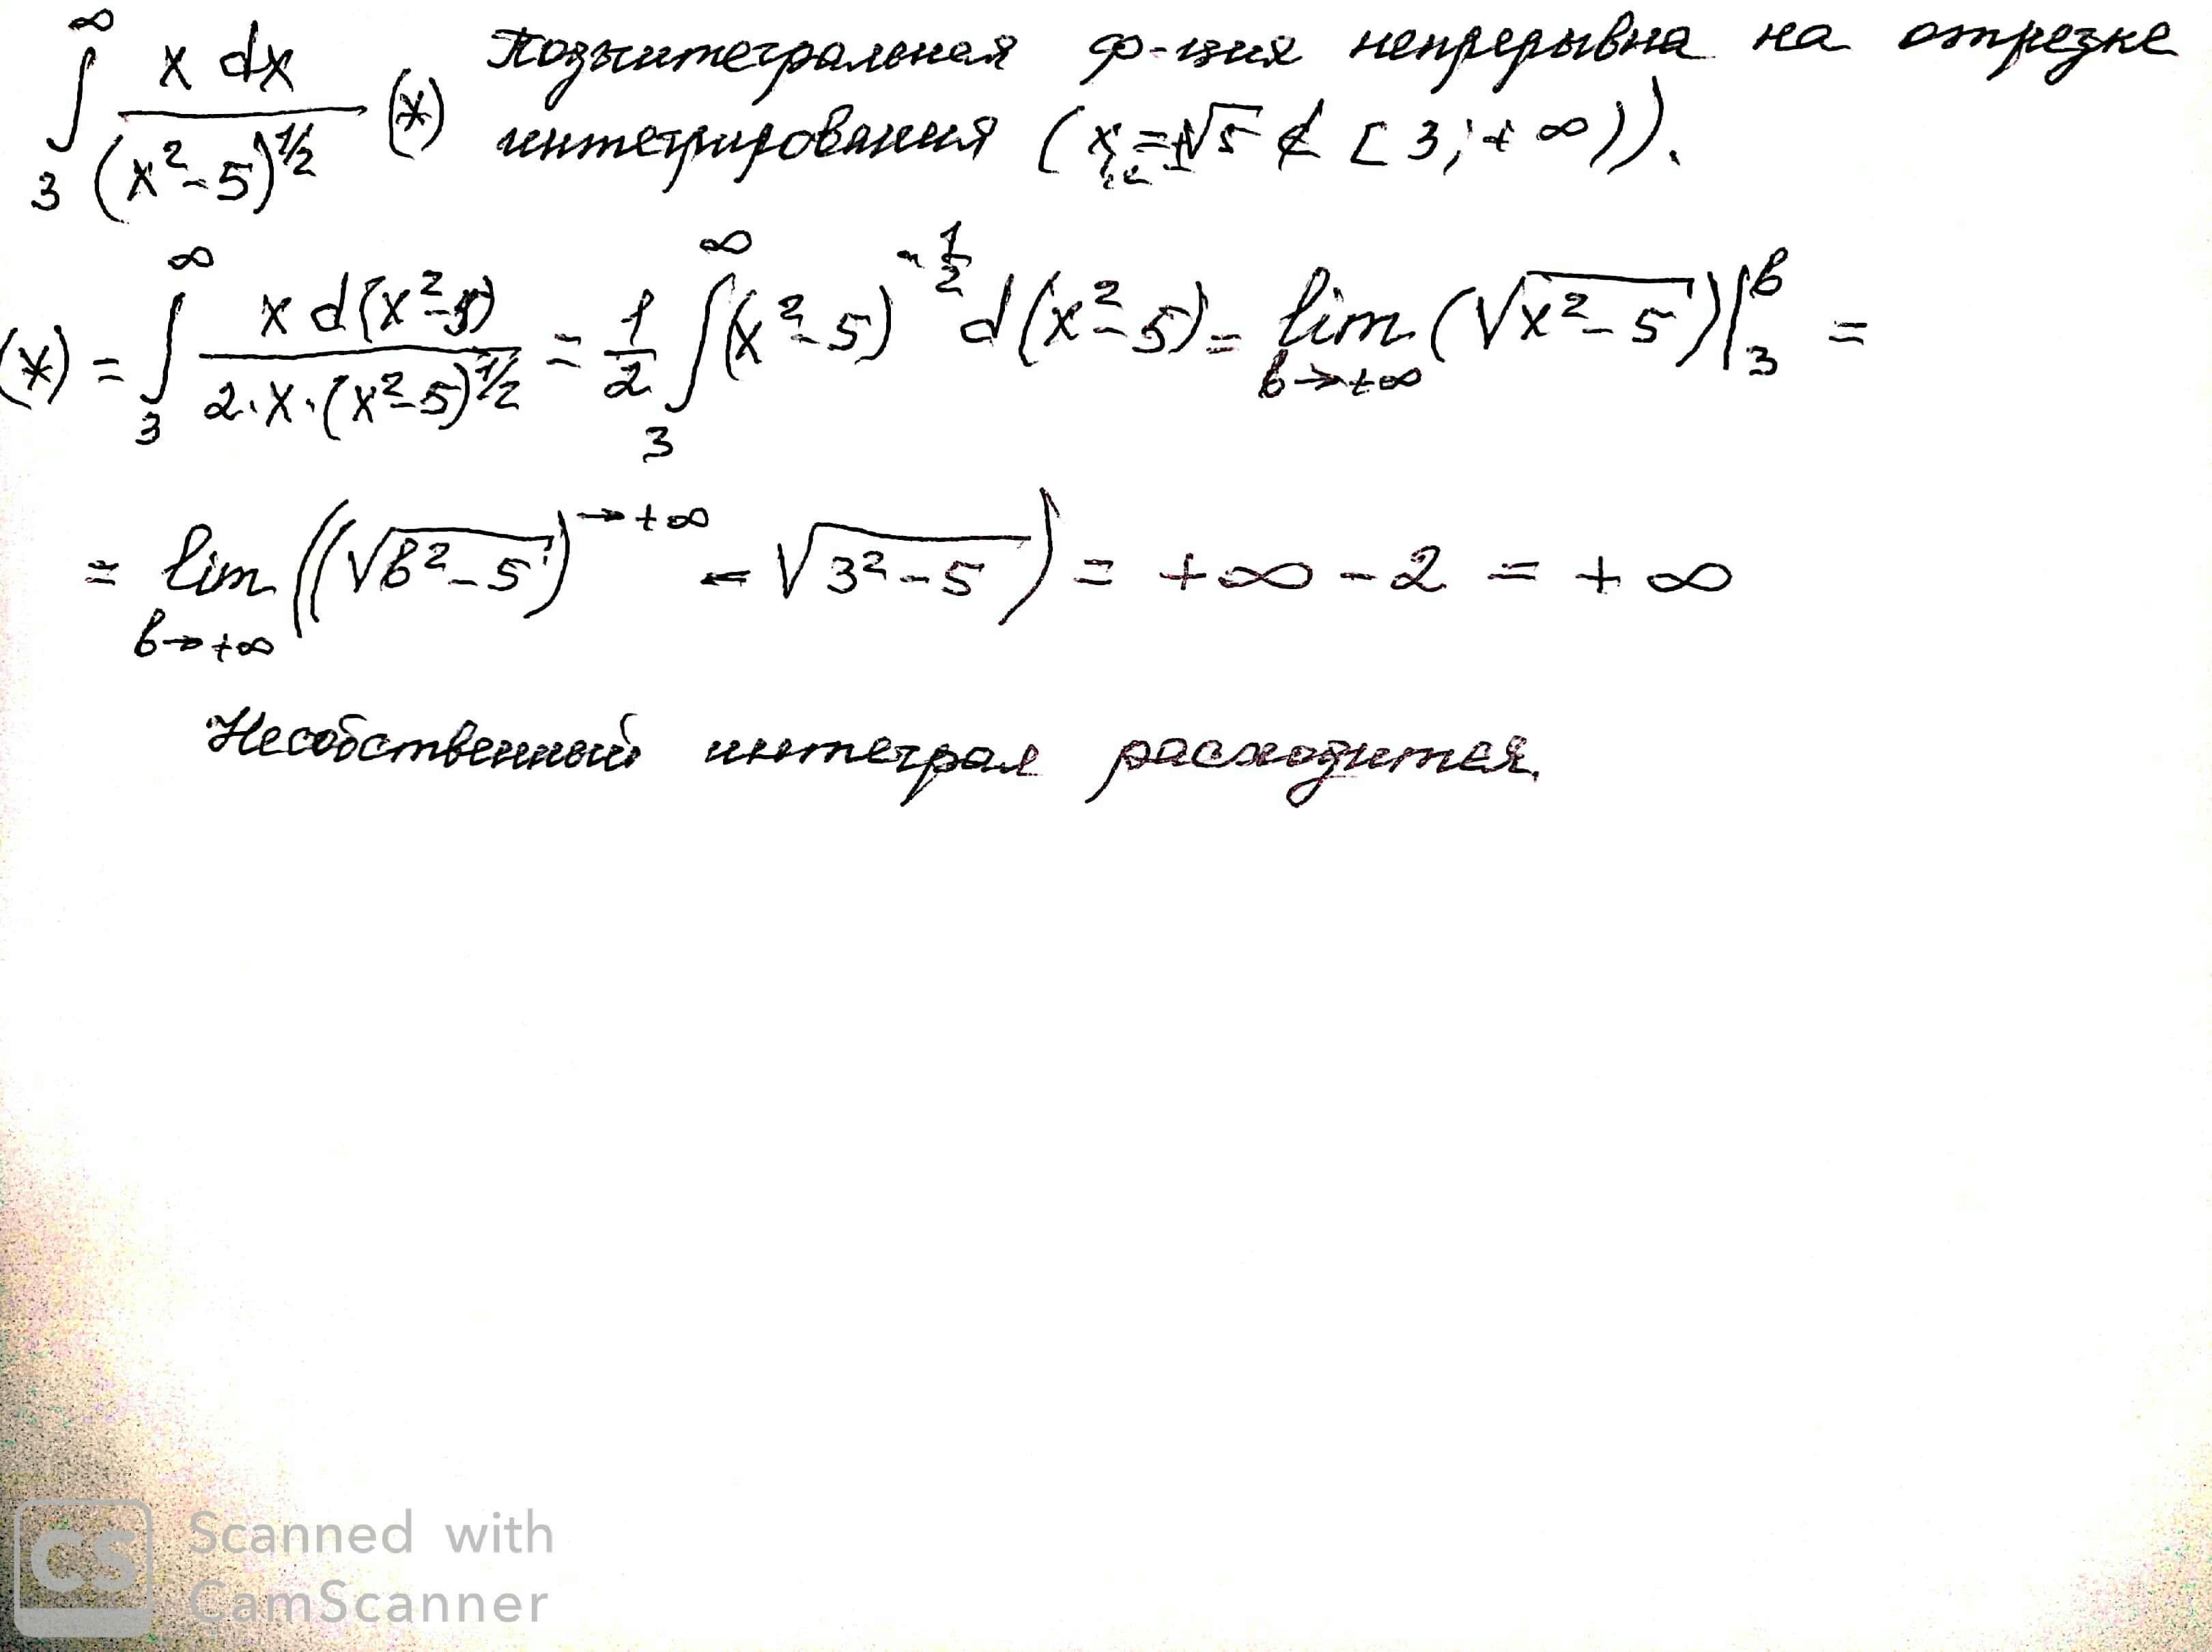 ∫₃^∞ x dx / (x² - 5)^{1/2} (*) Подынтегральная ф-ция непрерывна на отрезке
интегрирования (x₁,₂ = ±√5 ∉ [3; +∞)).
(*) = ∫₃^∞ x d(x² - 5) / 2·x·(x² - 5)^{1/2} = 1/2 ∫₃^∞ (x² - 5)^{-1/2} d(x² - 5) = lim_{b→+∞} (√(x² - 5))|₃^b =
= lim_{b→+∞} ((√(b² - 5))^{→+∞} - √(3² - 5)) = +∞ - 2 = +∞
Несобственный интеграл расходится.
CS Scanned with
CamScanner